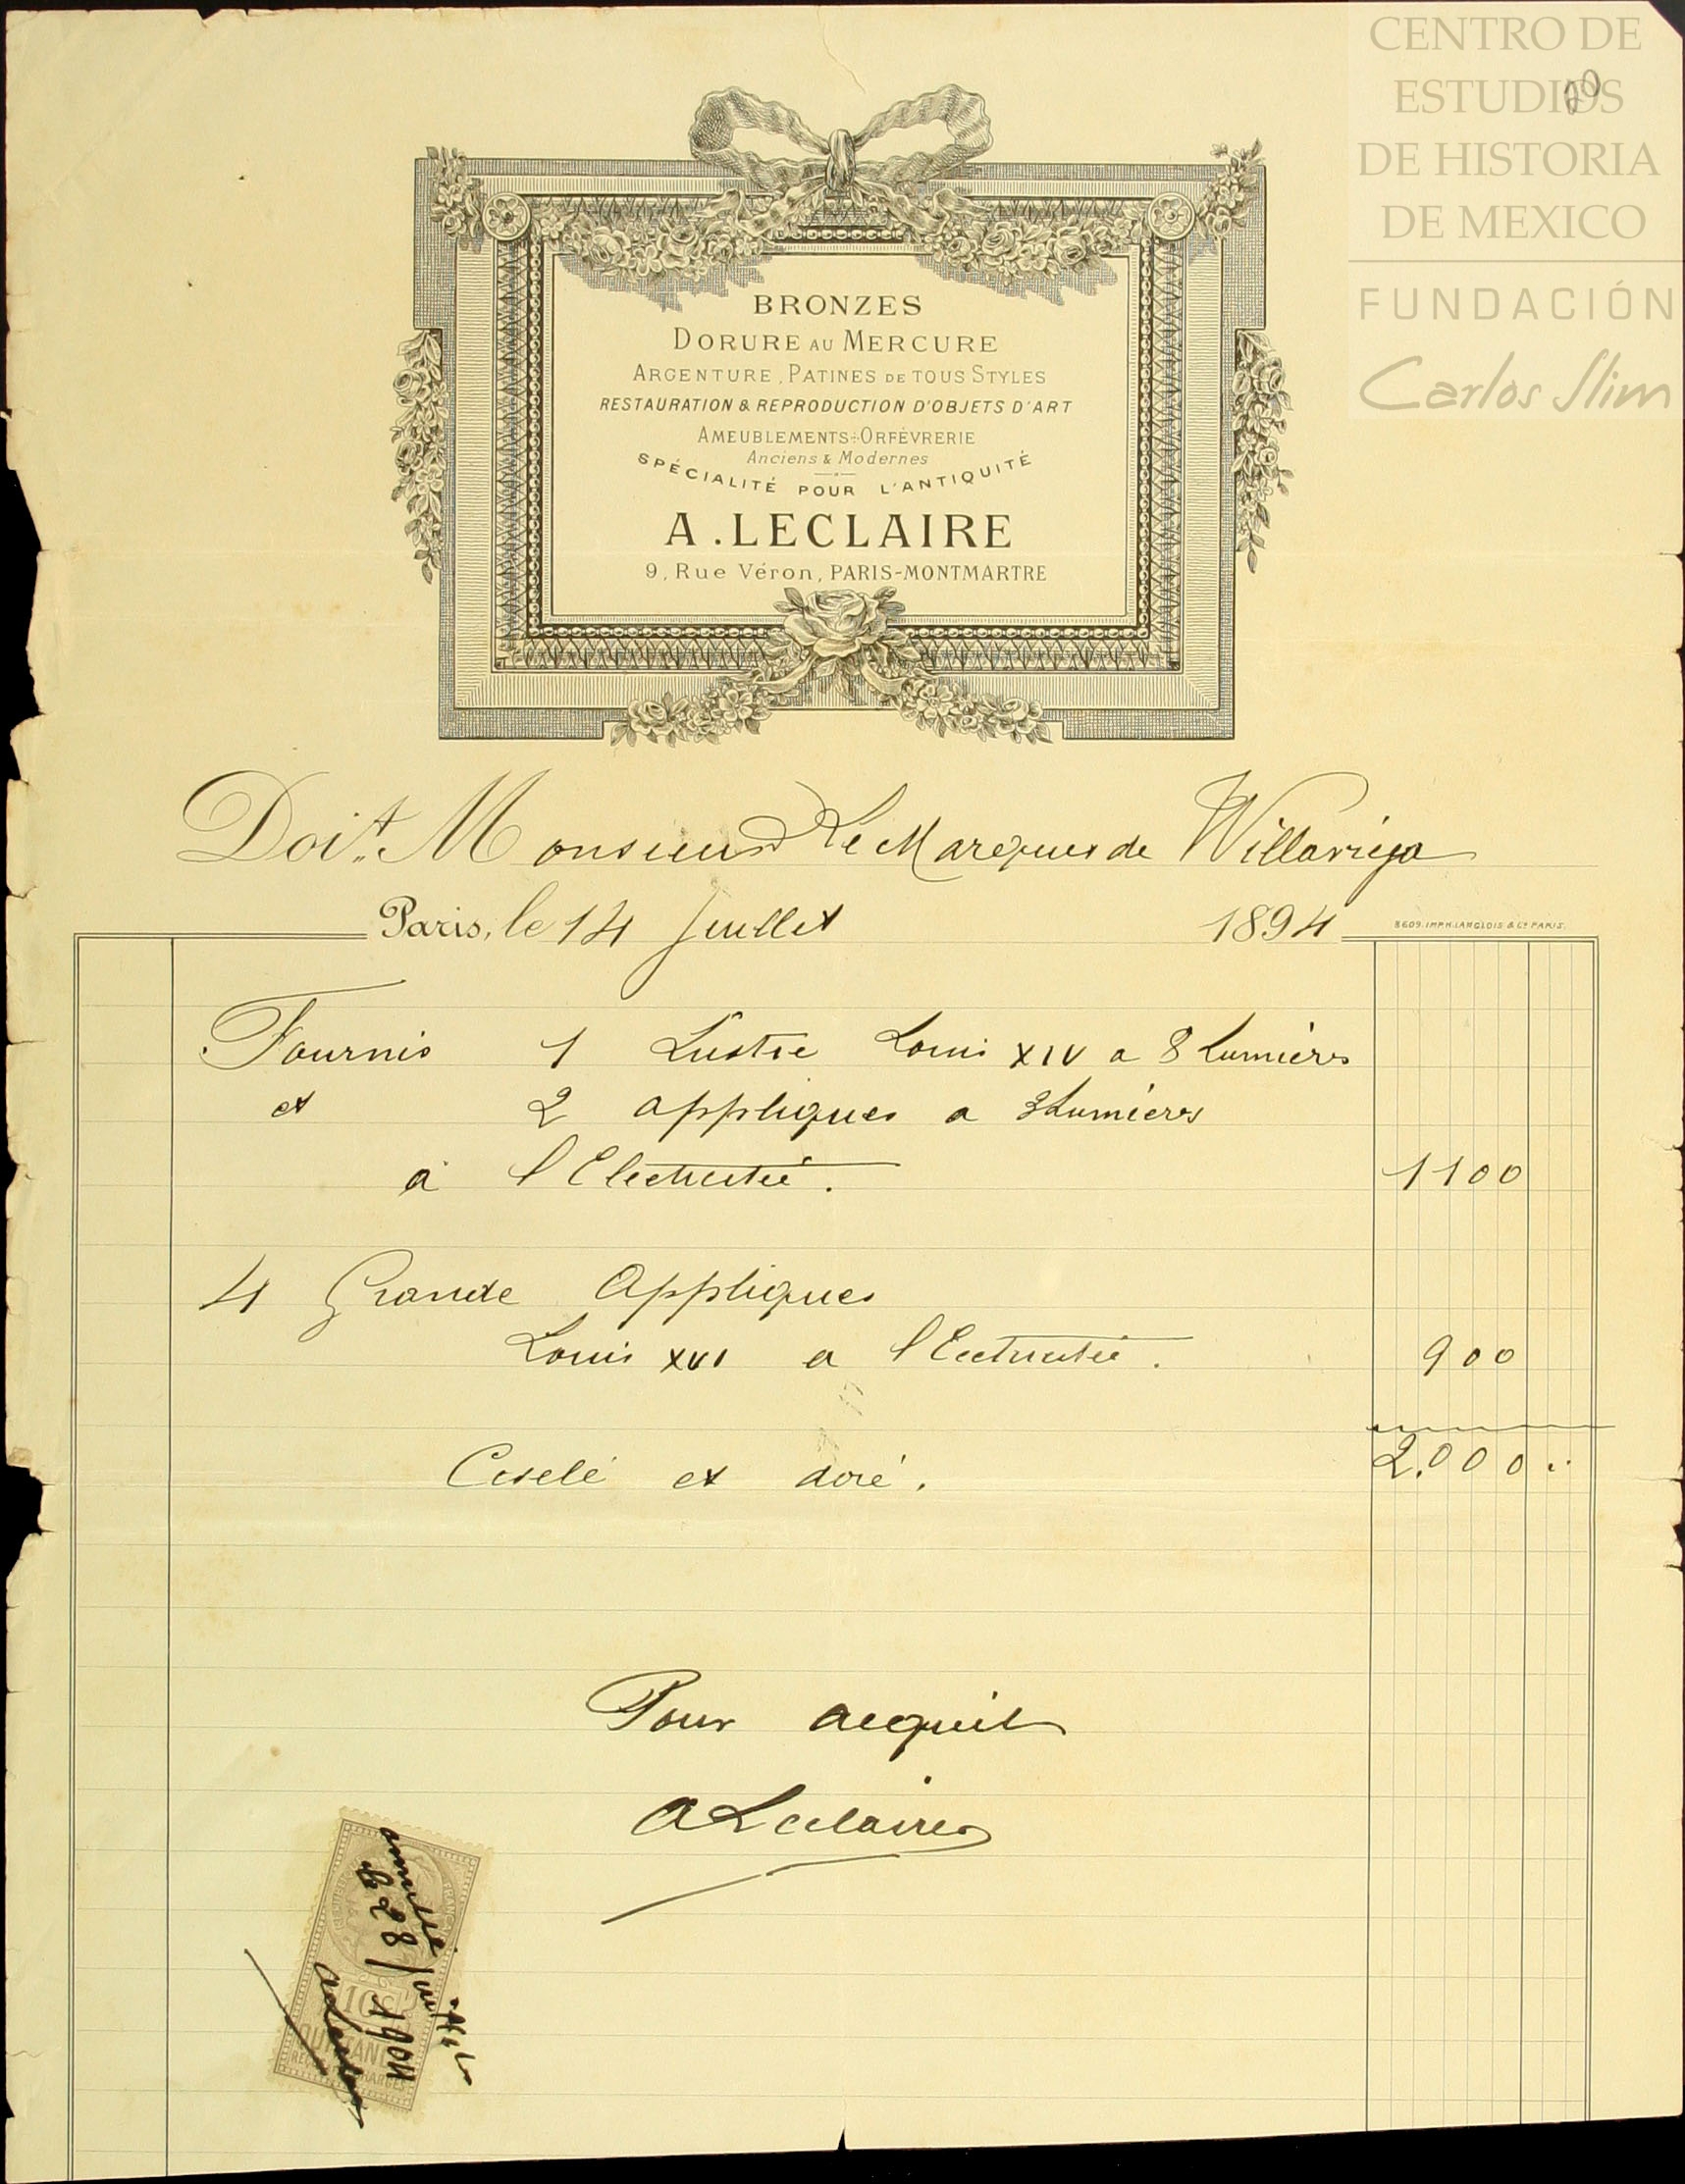 CENTRO DE
ESTUDIOS
DE HISTORIA
DE MEXICO
FUNDACIÓN
Carlos Slim
20
BRONZES
DORURE AU MERCURE
ARGENTURE, PATINES DE TOUS STYLES
RESTAURATION & REPRODUCTION D'OBJETS D'ART
AMEUBLEMENTS ÷ ORFÈVRERIE
Anciens & Modernes
SPÉCIALITÉ POUR L'ANTIQUITÉ
A. LECLAIRE
9, Rue Véron, PARIS-MONTMARTRE
Doit Monsieur Le Marques de Willavieja
Paris, le 14 Juillet 1894
8609. IMP. H. LANGLOIS & Cie PARIS.
Fournis 1 Lustre Louis XIV a 8 Lumières
et 2 appliques a 3 Lumières
a l'Electricité. 1100
4 Grande Appliques
Louis XVI a l'Eectricité. 900
2.000
Ciselé et doré.
Pour acquit
A Leclaire
10c
QUITTANCES
le 28 1904